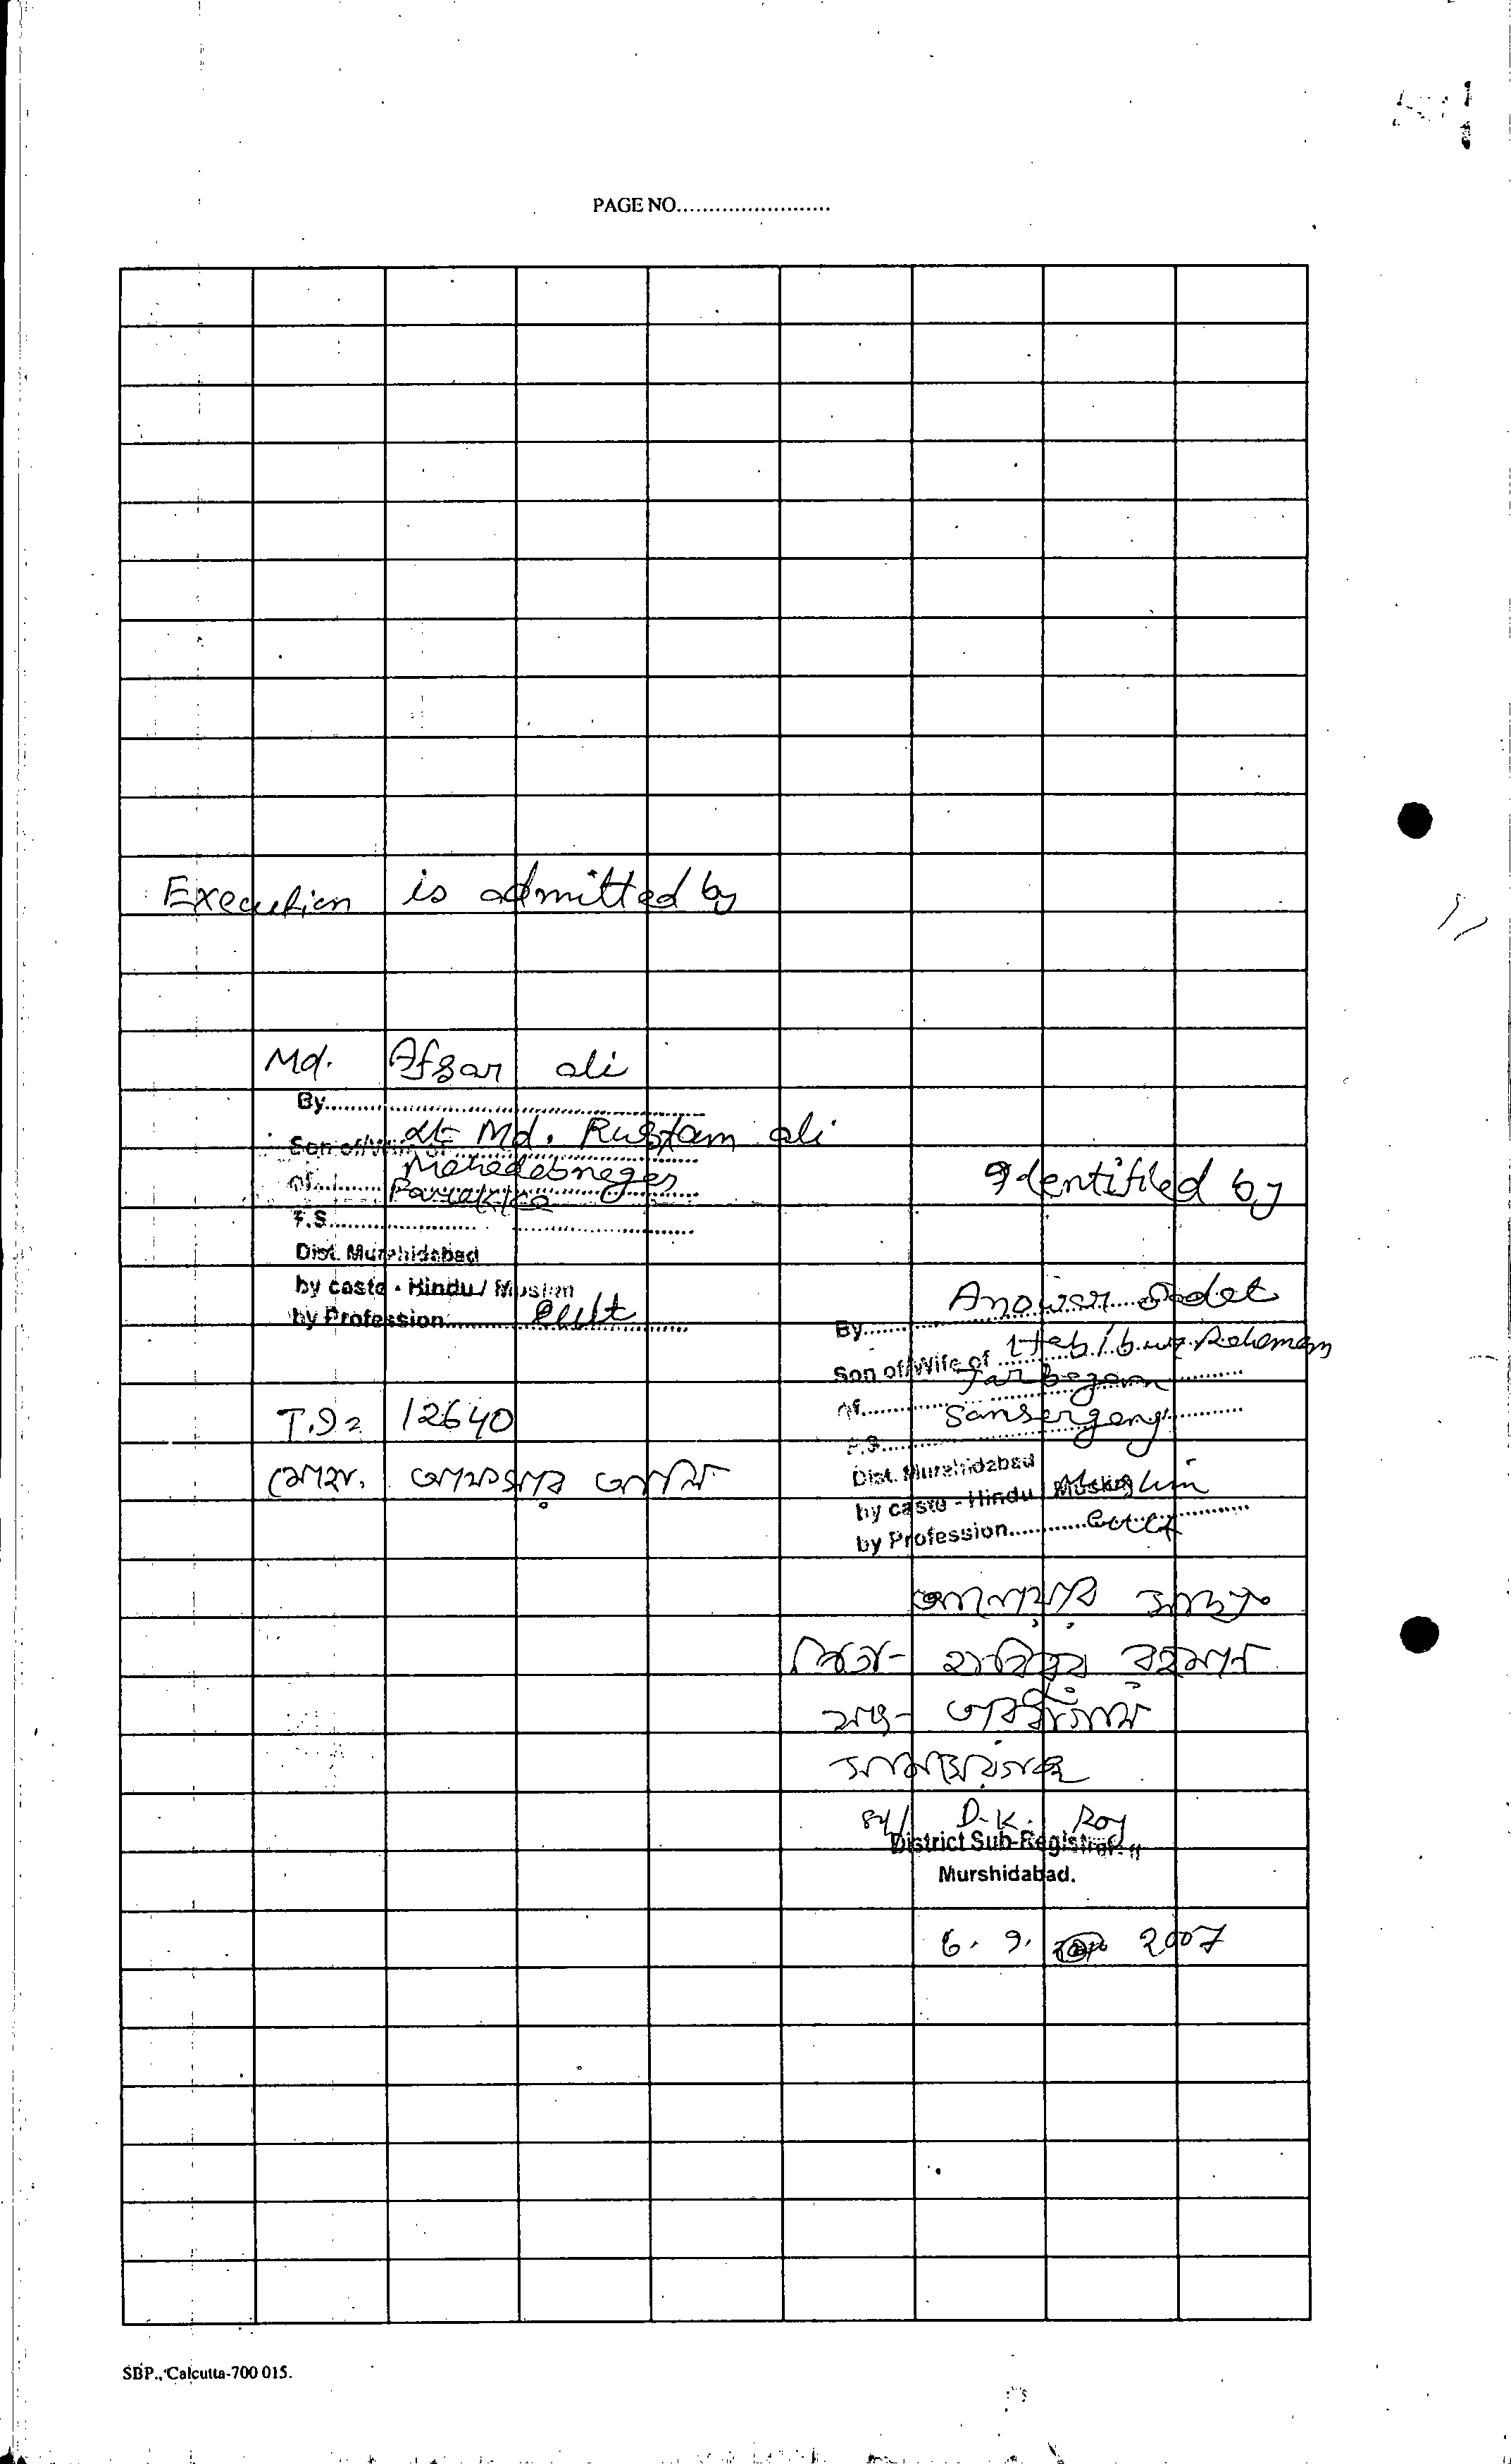 PAGE NO........................
Execution is admitted by
Md. Afsar ali
By........................
Son of/Wife of Lt Md. Rustam ali
of........ Mahadebnagar
Farakka
P.S........................
Dist. Murshidabad
by caste - Hindu / Muslim
by Profession........ Cult
T.I= 12640
মোহা. আফসার আলি
Identified by
By........ Anowar Sadat
Son of/Wife of Habibur Rahaman
of........ Tarbagan
P.S........ Samserganj
Dist. Murshidabad
by caste - Hindu Muslim
by Profession........ Cult
আনোয়ার সাদাৎ
পিতা- হাবিবুর রহমান
সাং- তারবাগান
সামসেরগঞ্জ
Sd/ D.K. Roy
District Sub-Registrar-II
Murshidabad.
6. 9. 2007
SBP., Calcutta-700 015.